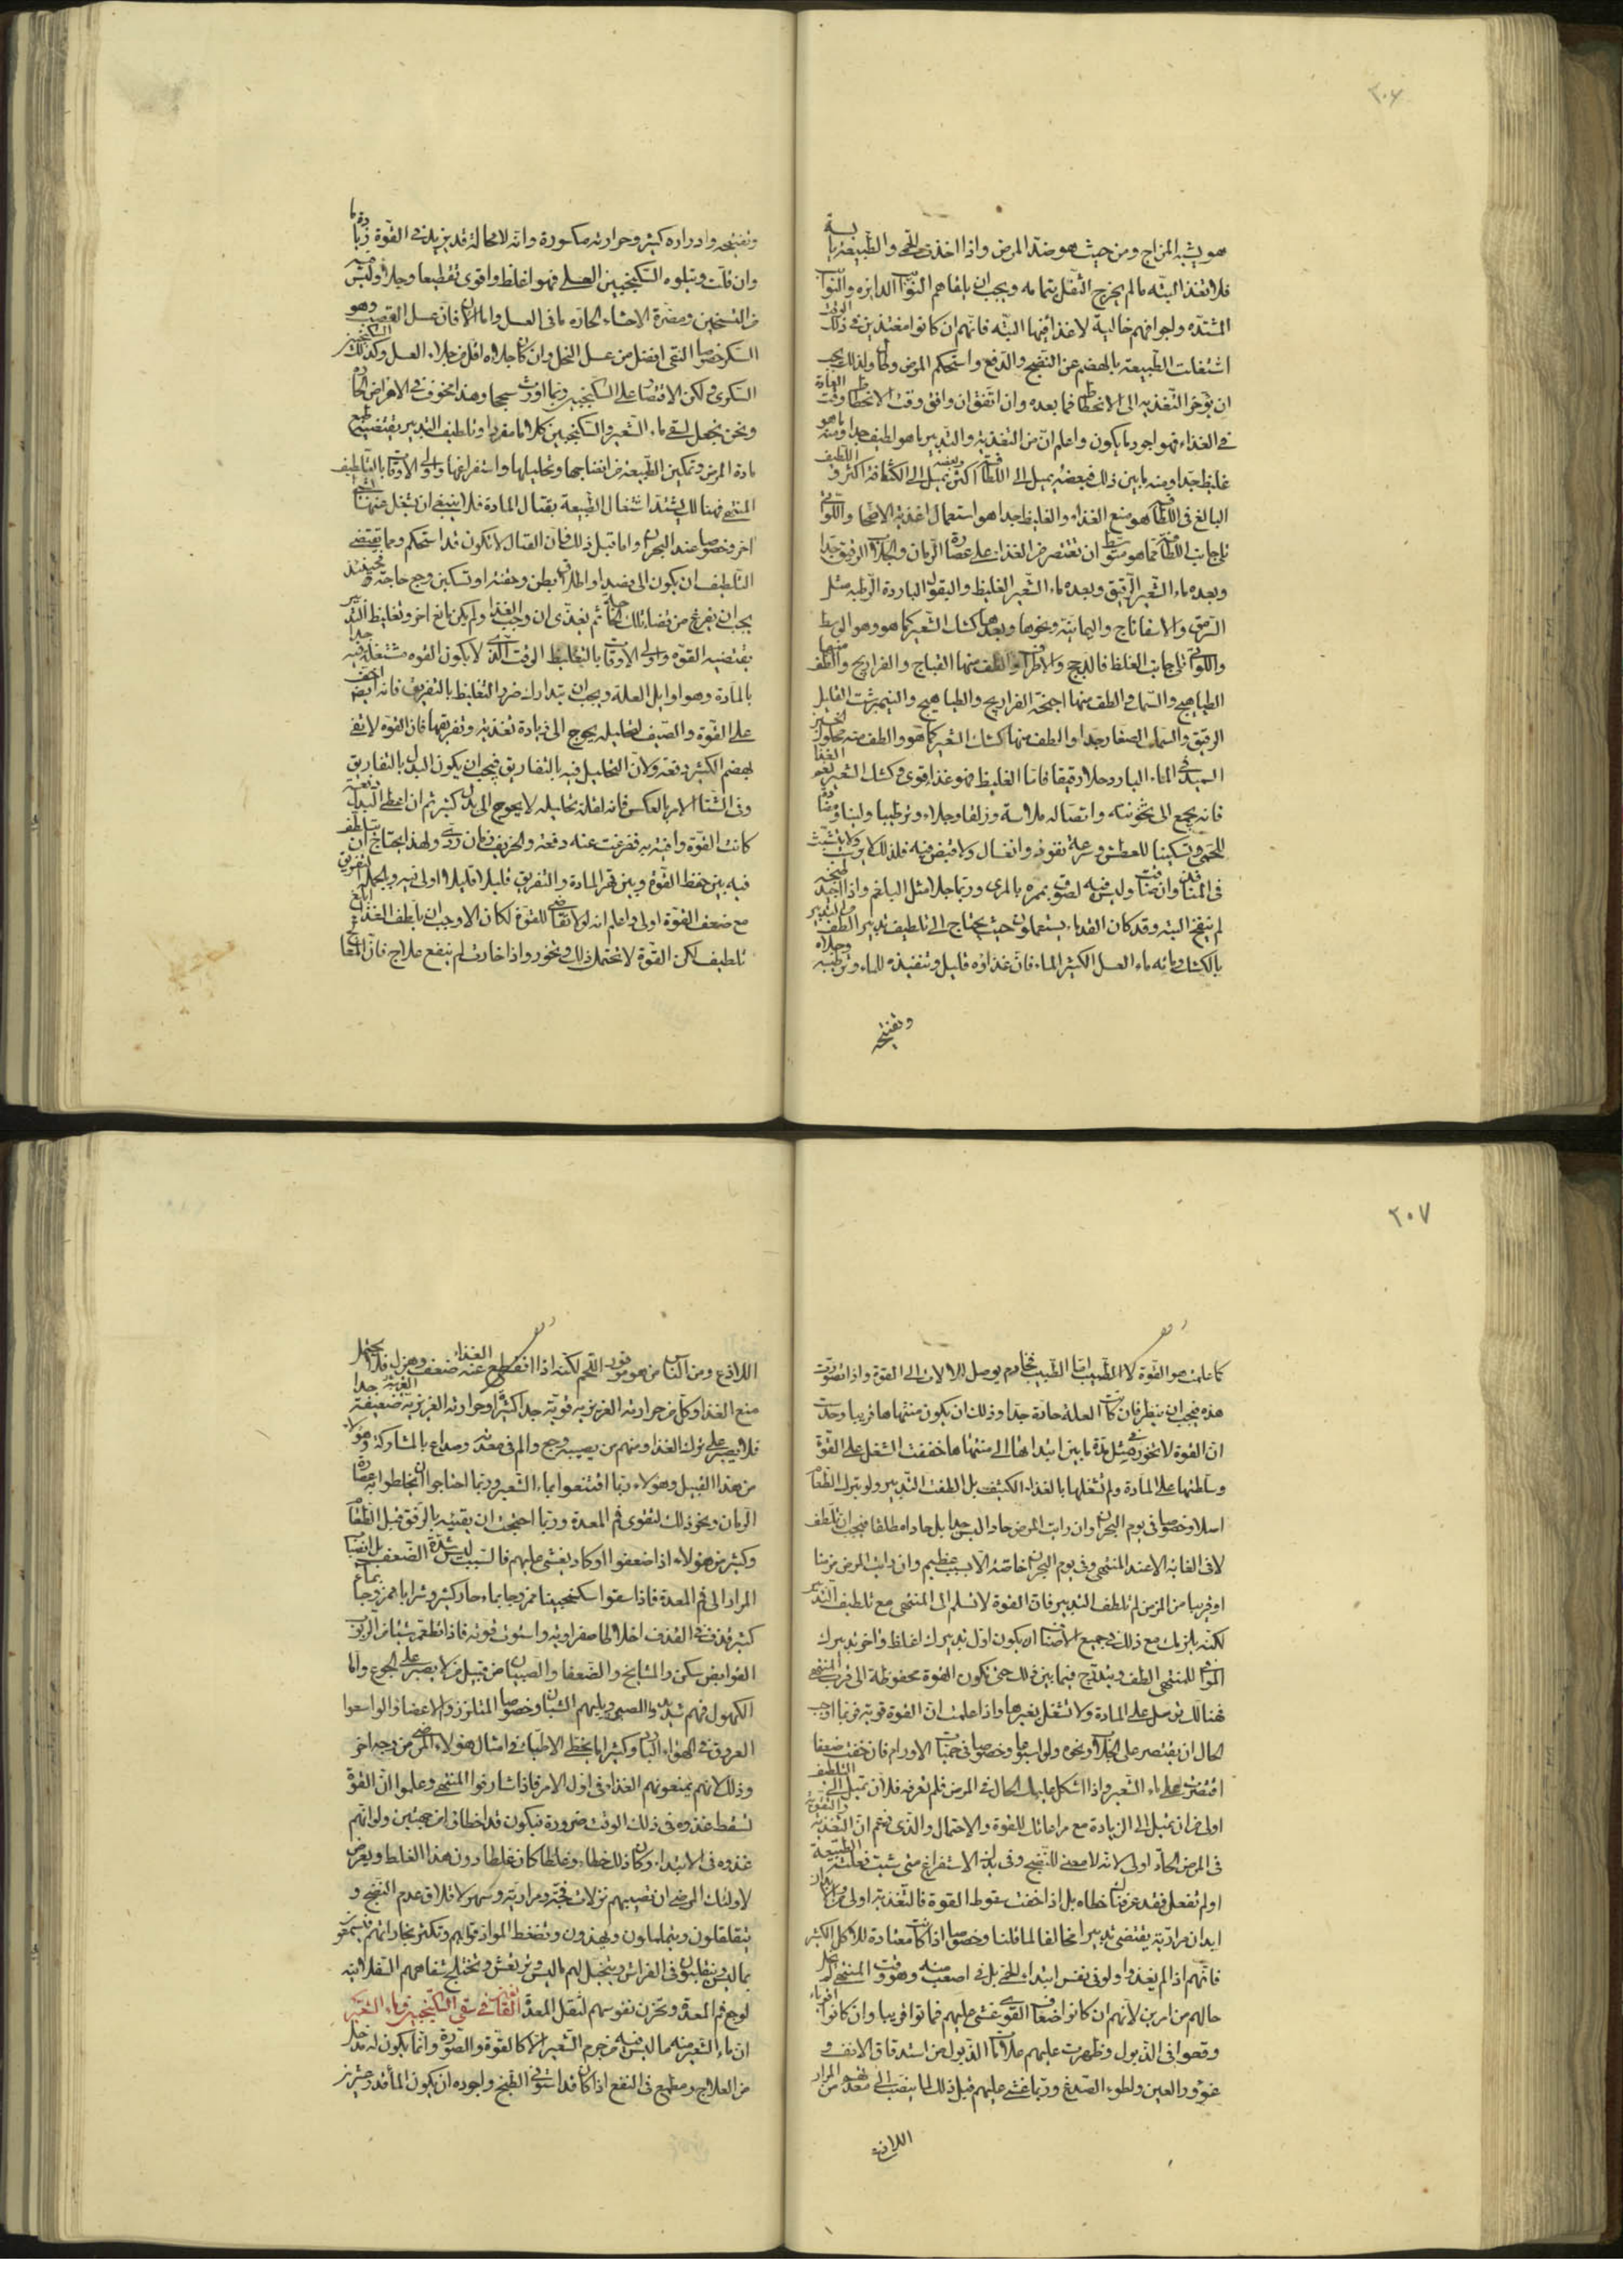 ٢٠٦
هو يشبه المزاج ومن حيث هو ضد المرض واذا اخذت الحمى والطبيعة يابسة
فلا تغذ البته ما لم يخرج الثفل بتمامه ويجب ان يلقاهم النوائب الدايرة والنوائب
المشتدة واجوافهم خالية لا غذا فيها البته فانهم ان كانوا مغتذين في ذلك الوقت
اشتغلت الطبيعة بالهضم عن النضج والدفع واستحكم المرض وطال ولذلك يجب
ان يؤخر التغذيه الى الانحطاط فما بعده وان اتفق ان وافق وقت الانحطاط وقت العادة
في الغذاء فهو اجود ما يكون واعلم ان من التغذية والتدبير ما هو لطيف جدا ومنه ما هو
غليظ جدا ومنه ما بين ذلك فبعضه يميل الى اللطافة اكثر وبعضه يميل الى الكثافة اكثر واللطيف
البالغ في اللطافة هو منع الغذاء والغليظ جدا هو استعمال اغذية الاصحا واللواتي
تلي جانب اللطافة مما هو متوسط ان تقتصر من الغذاء على عصارة الرمان والجلاب الرقيق جدا
وبعده ماء الشعير الرقيق وبعده ماء الشعير الغليظ والبقول الباردة الرطبه مثل
السرمق والاسفاناج واليمانية ونحوها وبعدها كشك الشعير كما هو وهو الوسط
واللواتي تلي جانب الغلظ فالدجج والاطراف والطف منها القباج والفراريج والطف منها
الطياهيج والسمك والطف منها اجنحة الفراريج والطياهيج والنيمبرشت القليل
الرقيق والسمك الصغار جدا والطف منها كشك الشعير كما هو والطف منه محلول الخبز
السميد في الماء البارد حلا رقيقا فاما الغليظ فهو غذا قوى وكشك الشعير نعم الغذا
فانه يجمع الى ثخونته واتصاله ملاسة وزلقا وجلاء وترطيبا ولينا ومضادة
للحمى وتسكينا للعطش وسرعة نفوذ وانغسال ولا قبض فيه فلذلك لا يرسب ولا يتشبث
في المنافذ وان ضاقت وليس فيه لصوق بمره بالمرى وربما جلا مثل البلغم واذا اجيد طبخه
لم ينفخ البته وقد كان القدماء يستعملون حيث يحتاج الى تلطيف تدبير الطف من التدبير
بالكشك وماءه ماء العسل الكثير الماء فان غذاؤه قليل وتنفيذه للماء وترطيبه وجلاه
وتفتيحه
وتفتيحه وادراره كثير وحرارته مكسورة وانه لا محالة قد يزيد في القوة زيادة ما
وان قلت ويتلوه السكنجبين العسلي فهو اغلظ واقوى تقطيعا وجلاء وليس فيه
من التسخين ومضرة الاحشاء الحارة ما في العسل واما الان فان عسل القصب وهو
السكر خصوصا النقى افضل من عسل النحل وان كان جلاءه اقل من جلاء العسل وكذلك السكنجبين
السكرى ولكن الاقتصار على السكنجبين ربما اورث سحجا وهذا مخوف في الامراض الحادة
ونحن نجعل لسقى ماء الشعير والسكنجبين كلاما مفردا وتلطيف التدبير يقتضيه طبع
مادة المرض وتمكين الطبيعة من انضاجها وتحليلها واستفراغها واولى الاوقات بالتلطيف
المنتهى فهنالك يشتد اشتغال الطبيعة بقتال المادة فلا ينبغي ان يشغل عنها بشئ
اخر وخصوصا عند البحران واما قبل ذلك فان القتال لا تكون قد استحكم ومما يقتضى
التلطيف ان يكون الى فصد او اطلاق بطن او حقنة او تسكين وجع حاجة فحينئذ
يجب ان يفرغ من قضاء تلك الحاجة ثم يغذى ان وجب الغذا ولم يكن مانع اخر وتغليظ التدبير
يقتضيه القوة واولى الاوقات بالتغليظ الوقت الذي لا يكون القوة مشتغلة فيه جدا
بالمادة وهو اوايل العلة ويجب ان يتدارك ضرر التغليظ بالتفريق فانه ايضا اخف
على القوة والصيف لتحليله يحوج الى زيادة تغذية وتفريقها فان القوة لا تفى
بهضم الكثير دفعة ولان التحليل فيه بالتفاريق فيجب ان يكون البدل بالتفاريق
وفي الشتاء الامر بالعكس فانه لقلة تحليله لا يحوج الى بدل كثير ثم ان اعطى البدل دفعة
كانت القوة وافية به ففرغت عنه دفعة والخريف زمان ردى ولهذا يحتاج ان يتلطف
فيه بين حفظ القوة وبين قهر المادة والتفريق قليلا قليلا اولى فيه وبالجملة التفريق
مع ضعف القوة اولى واعلم انه لولا تقاضى القوة لكان الاوجب ان يلطف الغذاء ابلغ
تلطيف لكن القوة لا تحتمل ذلك وتخور واذا خارت لم ينفع علاج فان المعالج
٢٠٧
كما علمت هو القوة لا الطبيب اما الطبيب فخادم يوصل الالات الى القوة واذا تصورت
هذه فيجب ان ينظر فان كانت العلة حادة جدا وذلك ان يكون منتهاها قريبا وحدست
ان القوة لا تخور في مثل مدة ما بين ابتدائها الى منتهاها خففت الشغل على القوة
وسلطتها على المادة ولم تشغلها بالغذاء الكثيف بل الطفت التدبير ولو بترك الطعام
اصلا وخصوصا في يوم البحران وان رايت المرض حادا ليس جدا بل حادا مطلقا فيجب ان تلطف
لا في الغاية الا عند المنتهى وفي يوم البحران خاصة الا بسبب عظيم وان رايت المرض مزمنا
او قريبا من المزمن لم تلطف التدبير فان القوة لا تسلم الى المنتهى مع تلطيف التدبير
لكنه يلزمك مع ذلك في جميع الاصناف ان يكون اول تدبيرك اغلظ واخر تدبيرك
الموافى للمنتهى الطف ويتدرج فيما بين ذلك حتى تكون القوة محفوظة الى قرب المنتهى
فهنالك ترسل على المادة ولا تشغل بغيرها واذا علمت ان القوة قوية فربما اوجب
الحال ان يقتصر على الجلاب ونحوه ولو اسبوعا وخصوصا في حميات الاورام فان خفت ضعفا
اقتصرت على ماء الشعير واذا اشكل عليك الحال في المرض فلم تعرفه فلان تميل الى التلطيف
اولى من ان تميل الى الزيادة مع مراعاتك للقوة والاحتمال والذي زعم ان التغذية والتقوية
في المرض الحاد اولى لانه لا معنى للنضج وفي يدك الاستفراغ متى شئت فعلت الطبيعة
او لم تفعل فقد عرفناك خطاه بل اذا خفت سقوط القوة فالتغذية اولى
ابدان مرارية يقتضى تدبيرا مخالفا لما قلنا وخصوصا اذا كانت معتادة للاكل الكثير
فانهم اذا لم يغذوا ولو في نفس ابتداء الحمى بل في اصعب منه وهو وقت المنتهى لم يخل
حالهم من امرين لانهم ان كانوا ضعاف القوى غشى عليهم فماتوا قريبا وان كانوا اقوياء
وقعوا في الذبول وظهرت عليهم علامات الذبول من استدقاق الانف و
غوور العين ولطوء الصدغ وربما غشى عليهم قبل ذلك لما ينصب الى معدهم من المرار
اللاذع
اللاذع ومن الناس من هو موفور اللحم لكنه اذا انقطع عنه الغذاء ضعف وهزل فلا يحتمل
منع الغذا وكل من حرارته الغريزية قوية جدا كثيرة او حرارته الغريزية ضعيفة جدا
فلا يصبر على ترك الغذا ومنهم من يصيبه وجع والم في معدته وصداع بالمشاركة وهؤلاء
من هذا القبيل وهؤلاء ربما اقتنعوا بماء الشعير وربما احتاجوا ان يخلطوا به عصارة
الرمان ونحو ذلك لتقوى فم المعدة وربما احتجت ان يقيئه بالرفق قبل الطعام
وكثير من هؤلاء اذا ضعفوا او كاد يغشى عليهم فالسبب ليس شدة الضعف بل انصباب
المرار الى فم المعدة فاذا سقوا سكنجبينا ممزوجا بماء حار كثير وشرابا ممزوجا بماء
كثير قذف في القذف اخلاطا صفراوية واستوت قوته فاذا تطعم شيئا من الربوب
القوابض سكن والمشايخ والضعفا والصبيان من قبيل من لا يصبر على الجوع واما
الكهول فهم شديدوا الصبر ويليهم الشبان وخصوصا المتلززوا الاعضاء والواسعوا
العروق في الهواء البارد وكثيرا ما يخطى الاطباء في امثال هؤلاء المرضى من وجه اخر
وذلك انهم يمنعونهم الغذا في اول الامر فاذا شارفوا المنتهى وعلموا ان القوة
تسقط غذوه في ذلك الوقت ضرورة فيكون قد اخطاوا من جهتين ولو انهم
غذوه في الابتداء وكان ذلك خطاء وغلطا كان غلطا دون هذا الغلط ويعرض
لاولئك المرضى ان تصيبهم نزلات فجة ومرارية وسهر لاقلاق عدم النضج و
يتقلقلون ويتململون ويهذون وتضغط المواد قواهم وتكثر بخاراتهم فيسمعون
ما ليس ويتقلبون في الفراش ويتخيل لهم ما ليس وترتعش وتختلج شفاههم السفلانية
لوجع فم المعدة وتحزن نفوسهم لثقل المعدة القول في سقى السكنجبين وماء الشعير
ان ماء الشعير منه ما ليس فيه من جرم الشعير الا كالقوة والصورة وانما يكون له مدخل
من العلاج ومطمع في النفع اذا كان قد استوفى الطبخ واجوده ان يكون الماء قدر عشرين